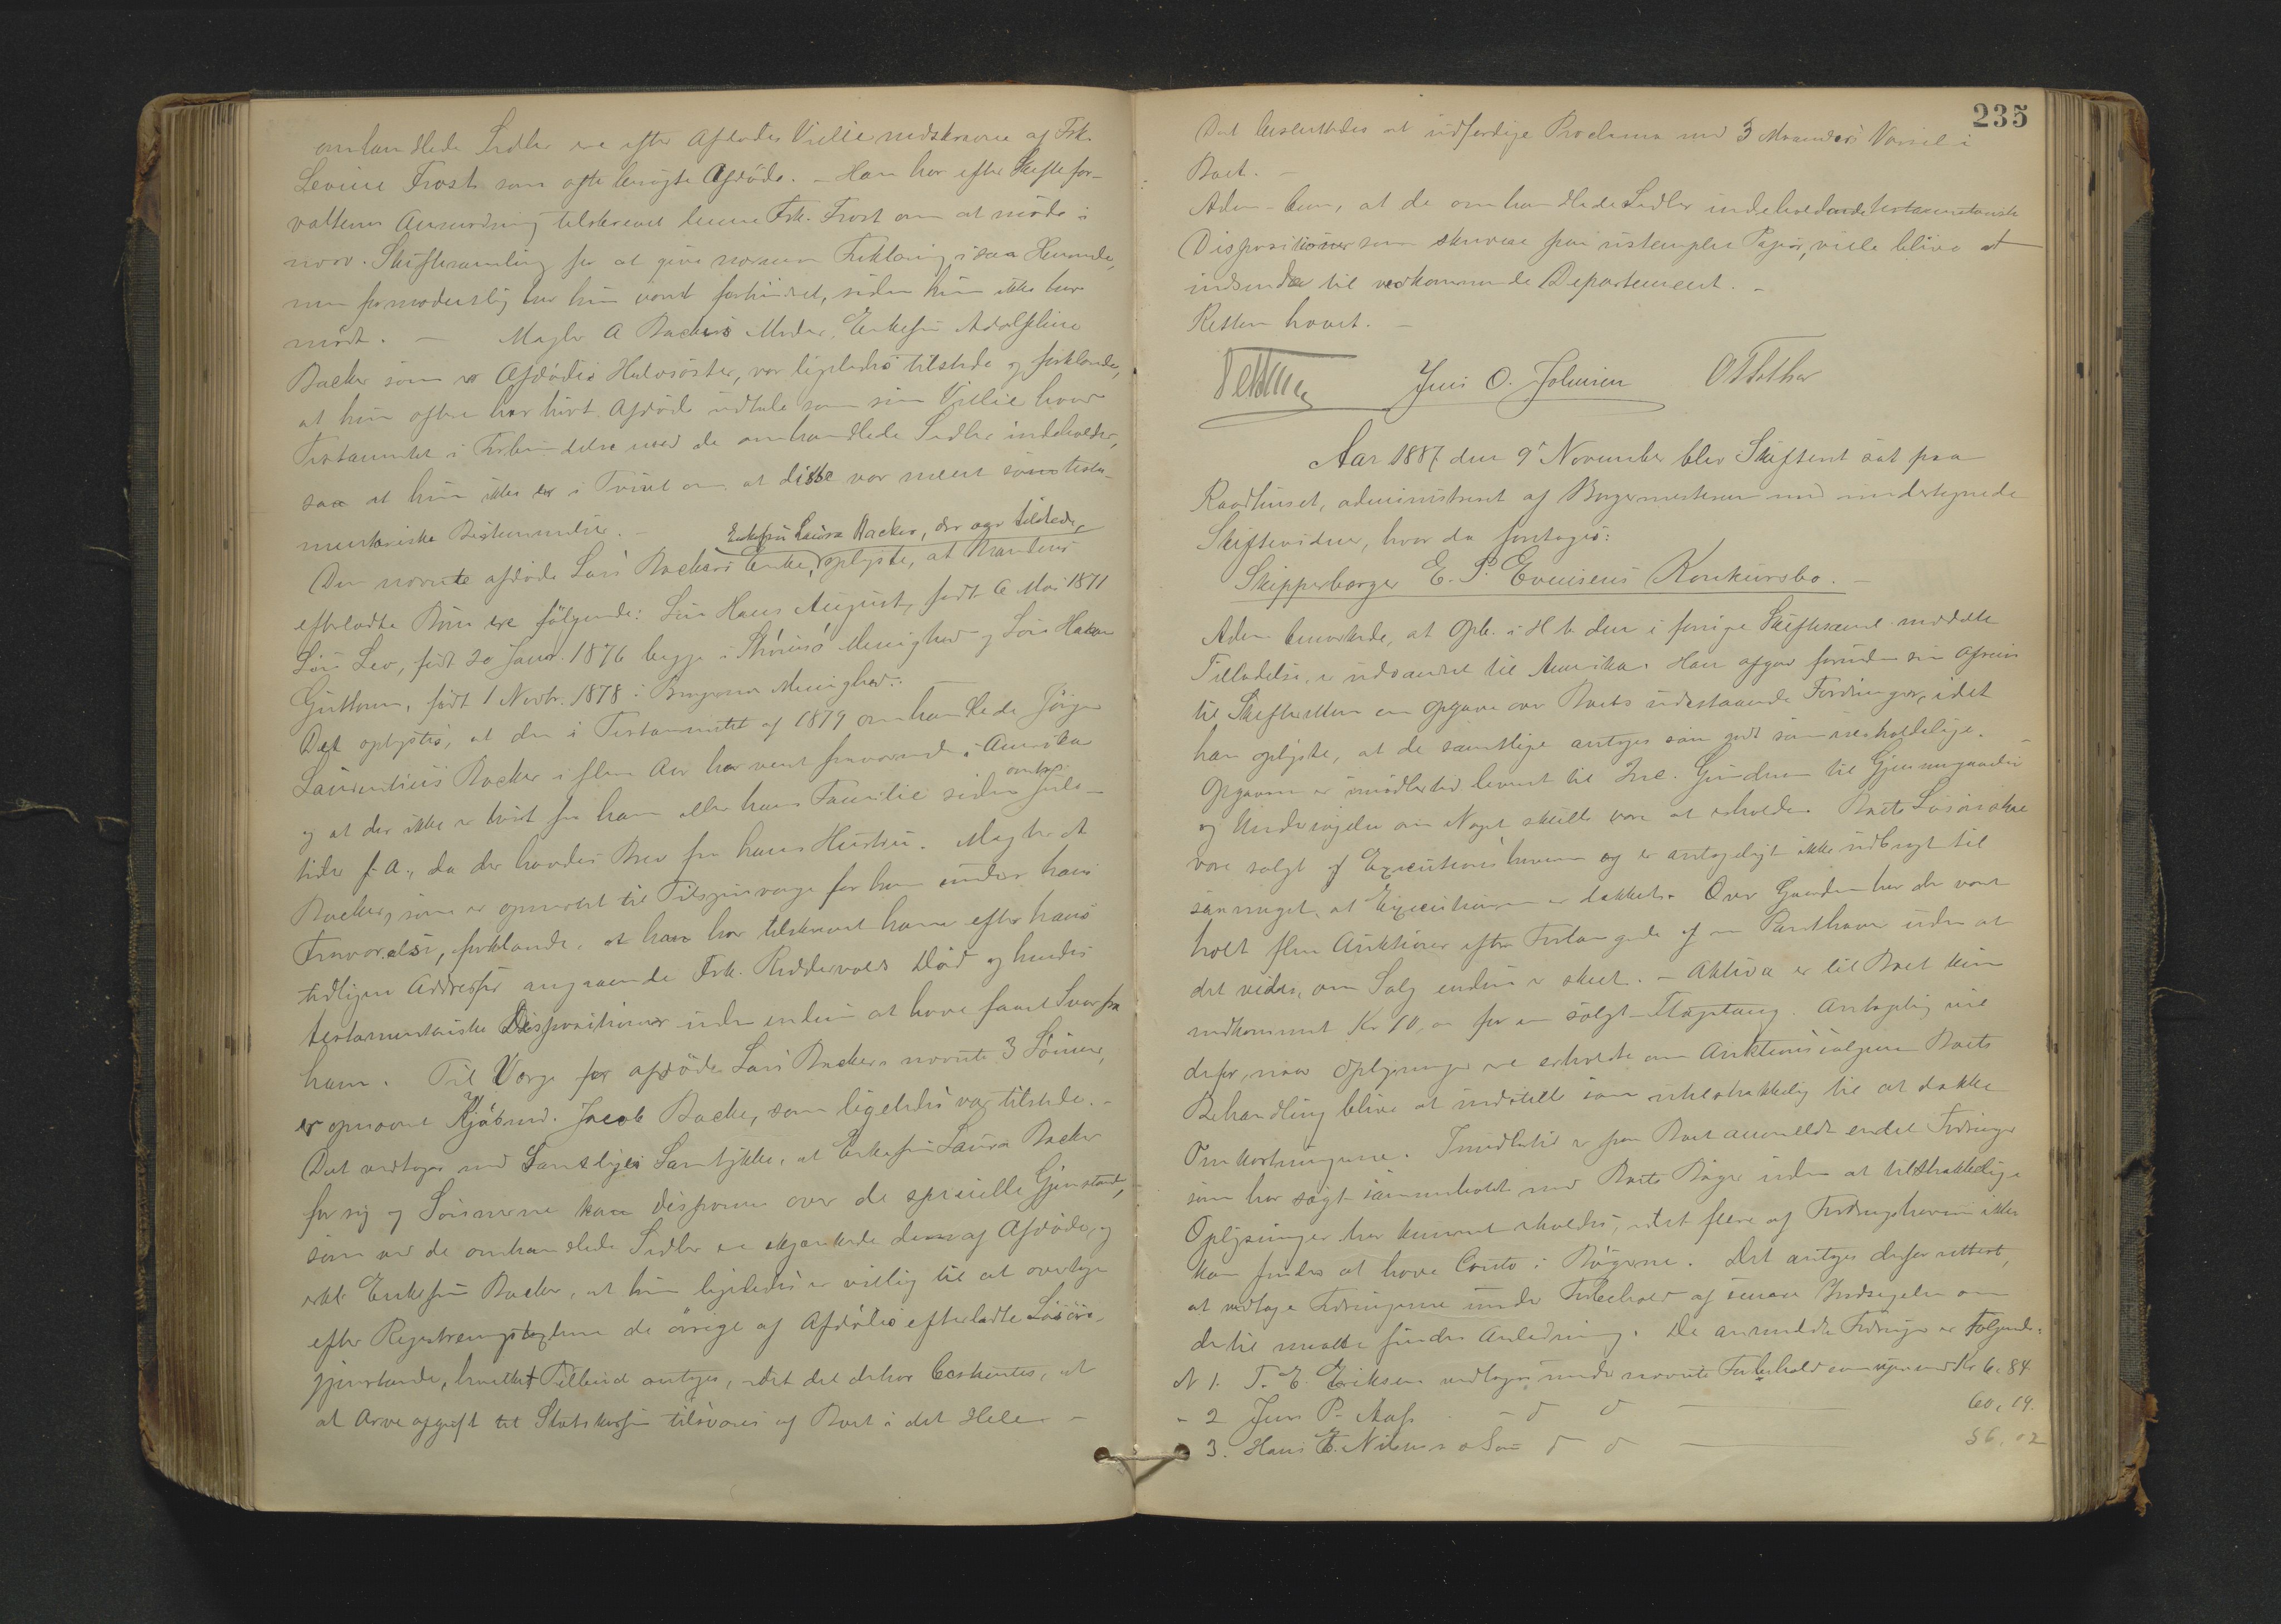 omhandlede Sedler ere efter Afdødes Villie nedskrevne af Frk.
Levine Frost som ofte besøgte Afdøde. – Han har efter Skiftefor-
valterens Anmodning tilskrevet denne Frk. Frost om at møde i
nærv. Skiftesamling for at give nærmere Forklaring i saa Henseende,
men formodentlig har hun været forhindret, siden hun ikke har
mødt. – Mægler A Backers Moder, Enkefru Adolfine
Backer som er Afdødes Halvsøster, var ligeledes tilstede og forklarede,
at hun oftere har hørt Afdøde udtale som sin Villie hvad
Testamentet i Forbindelse med de omhandlede Sedler indeholder,
saa at hun ikke er i Tvivl om at disse var ment som testa-
mentariske Bestemmelser. –
Enkefru Laura Backer, der var tilstede,
Den nævnte afdøde Lars Backers Enke, oplyste, at Mandens
efterladte Børn ere følgende: Søn Hans August, født 6 Mai 1871
Søn Leo, født 20 Janr. 1876 begge i Menighed og Søn Hakon
Guttorm, født 1 Novbr. 1878 i Bragernes Menighed. –
Det oplystes, at den i Testamentet af 1879 omhandlede Jørgen
Laurentius Backer i flere Aar har været fraværende i Amerika
og at der ikke er hørt fra ham eller hans Familie siden omtr. Jule-
tider f. A., da der havdes Brev fra hans Hustru. Mægler A
Backer, som er opnævnt til Tilsynsværge for ham under hans
Fraværelse, forklarede, at han har tilskrevet ham efter hans
tidligere Addresse angaaende Frk. Riddervolds Død og hendes
testamentariske Dispositioner uden endnu at have faaet Svar fra
ham. Til Værge for afdøde Lars Backers nævnte 3 Sønner,
er opnævnt Kjøbmd. Jacob Backe, som ligeledes var tilstede. –
Det vedtoges med Samtliges Samtykke, at Enkefru Laura Backer
for sig og Sønnerne kan disponere over de specielle Gjenstande,
som ved de omhandlede Sedler er skjænkede dem af Afdøde, og
erkl. Enkefru Backer, at hun ligeledes er villig til at overtage
efter Registreringstaxterne de øvrige af Afdødes efterladte Løsøre-
gjenstande, hvilket Tilbud antoges, idet det derhos bestemtes, at
at Arveafgift til Statskassen tilsvares af Boet i det Hele –
235
Det besluttedes at udfærdige Proclama med 3 Maaneders Varsel i
Boet. –
Adm. bem., at de omhandlede Sedler indeholdende testamentariske
Dispositioner som skrevne paa ustemplet Papir, ville blive at
indsende til vedkommende Departement. –
Retten hævet. –
Jens O. Johnsen
Aar 1887 den 9de November blev Skifteret sat paa
Raadhuset, administreret af Borgermesteren med undertegnede
Skiftevidner, hvor da foretoges:
Skipperborger E. P. Evensens Konkursbo. –
Adm. bemærkede, at Opb. i H. t. den i forrige Skiftesaml. meddelte
Tilladelse, er udvandret til Amerika. Han afgav forinden sin Afreise
til Skifteretten en Opgave over Boets udestaaende Fordringer, idet
han oplyste, at de samtlige antoges saa godt som uerholdelige. –
Opgaven er imidlertid leveret til Ink. Gundersen til Gjennemgaaelse
og Undersøgelse om Noget skulde være at erholde. Boets Løsøre skal
være solgt af Executionshaveren og er antageligt ikke udbragt til
saa meget, at Executionen er dækket. Over Gaarden har der været
holdt flere Auktioner efter Forlangende af en Panthaver uden at
det vides, om Salg endnu er skeet. – Aktiva er til Boet kun
indkommet Kr 10,00 for en solgt Flagstang. Antagelig vil
derfor, naar Oplysninger ere erholdte om Auktionssalgene Boets
Behandling blive at indstille som utilstrækkelig til at dække
Omkostningerne. Imidlertid er paa Boet anmeldt endel Fordringer
som har søgt sammenholdt med Boets Bøger uden at tilstrækkelige
Oplysninger har kunnet erholdes, idet flere af Fordringshaverne ikke
kan findes at have Conto i Bøgerne. Det antoges derfor rettest,
at vedtage Fordringerne under Forbehold af senere Indsigelse om
dertil maatte findes Anledning. De anmeldte Fordringer er Følgende:
N 1. T. E. Eriksen vedtages under nævnte Forbehold som uprivil. Kr 6,84
- 2 Jens P. Aass – d d – 60,19.
3. Hans E. Nilsen & Søn d d – 36,02